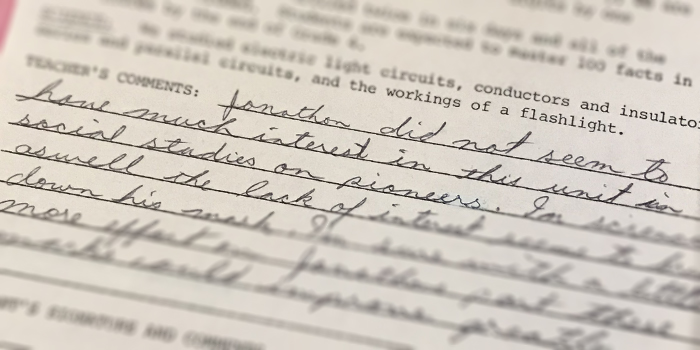 by the end of Grade 6. Students are expected to master 100 facts in
studied electric light circuits, conductors and insulato
and parallel circuits, and the workings of a flashlight.
TEACHER'S COMMENTS: Jonathon did not seem to
have much interest in this unit in
social studies on pioneers. In science
aswell the lack of interest seems to
down his mark. I'm sure with a little
more effort on Jonathons part these
marks could improve greatly